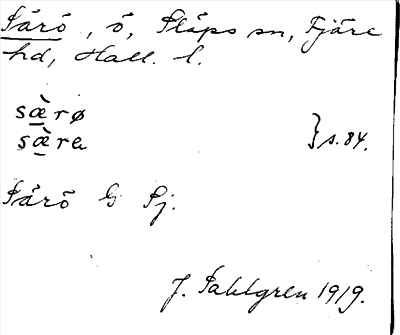 Särö, ö, Släps sn, Fjäre
hd, Hall. l.
sæ̀rø
sæ̀ra
} s. 84.
Särö G Sj.
J. Sahlgren 1919.